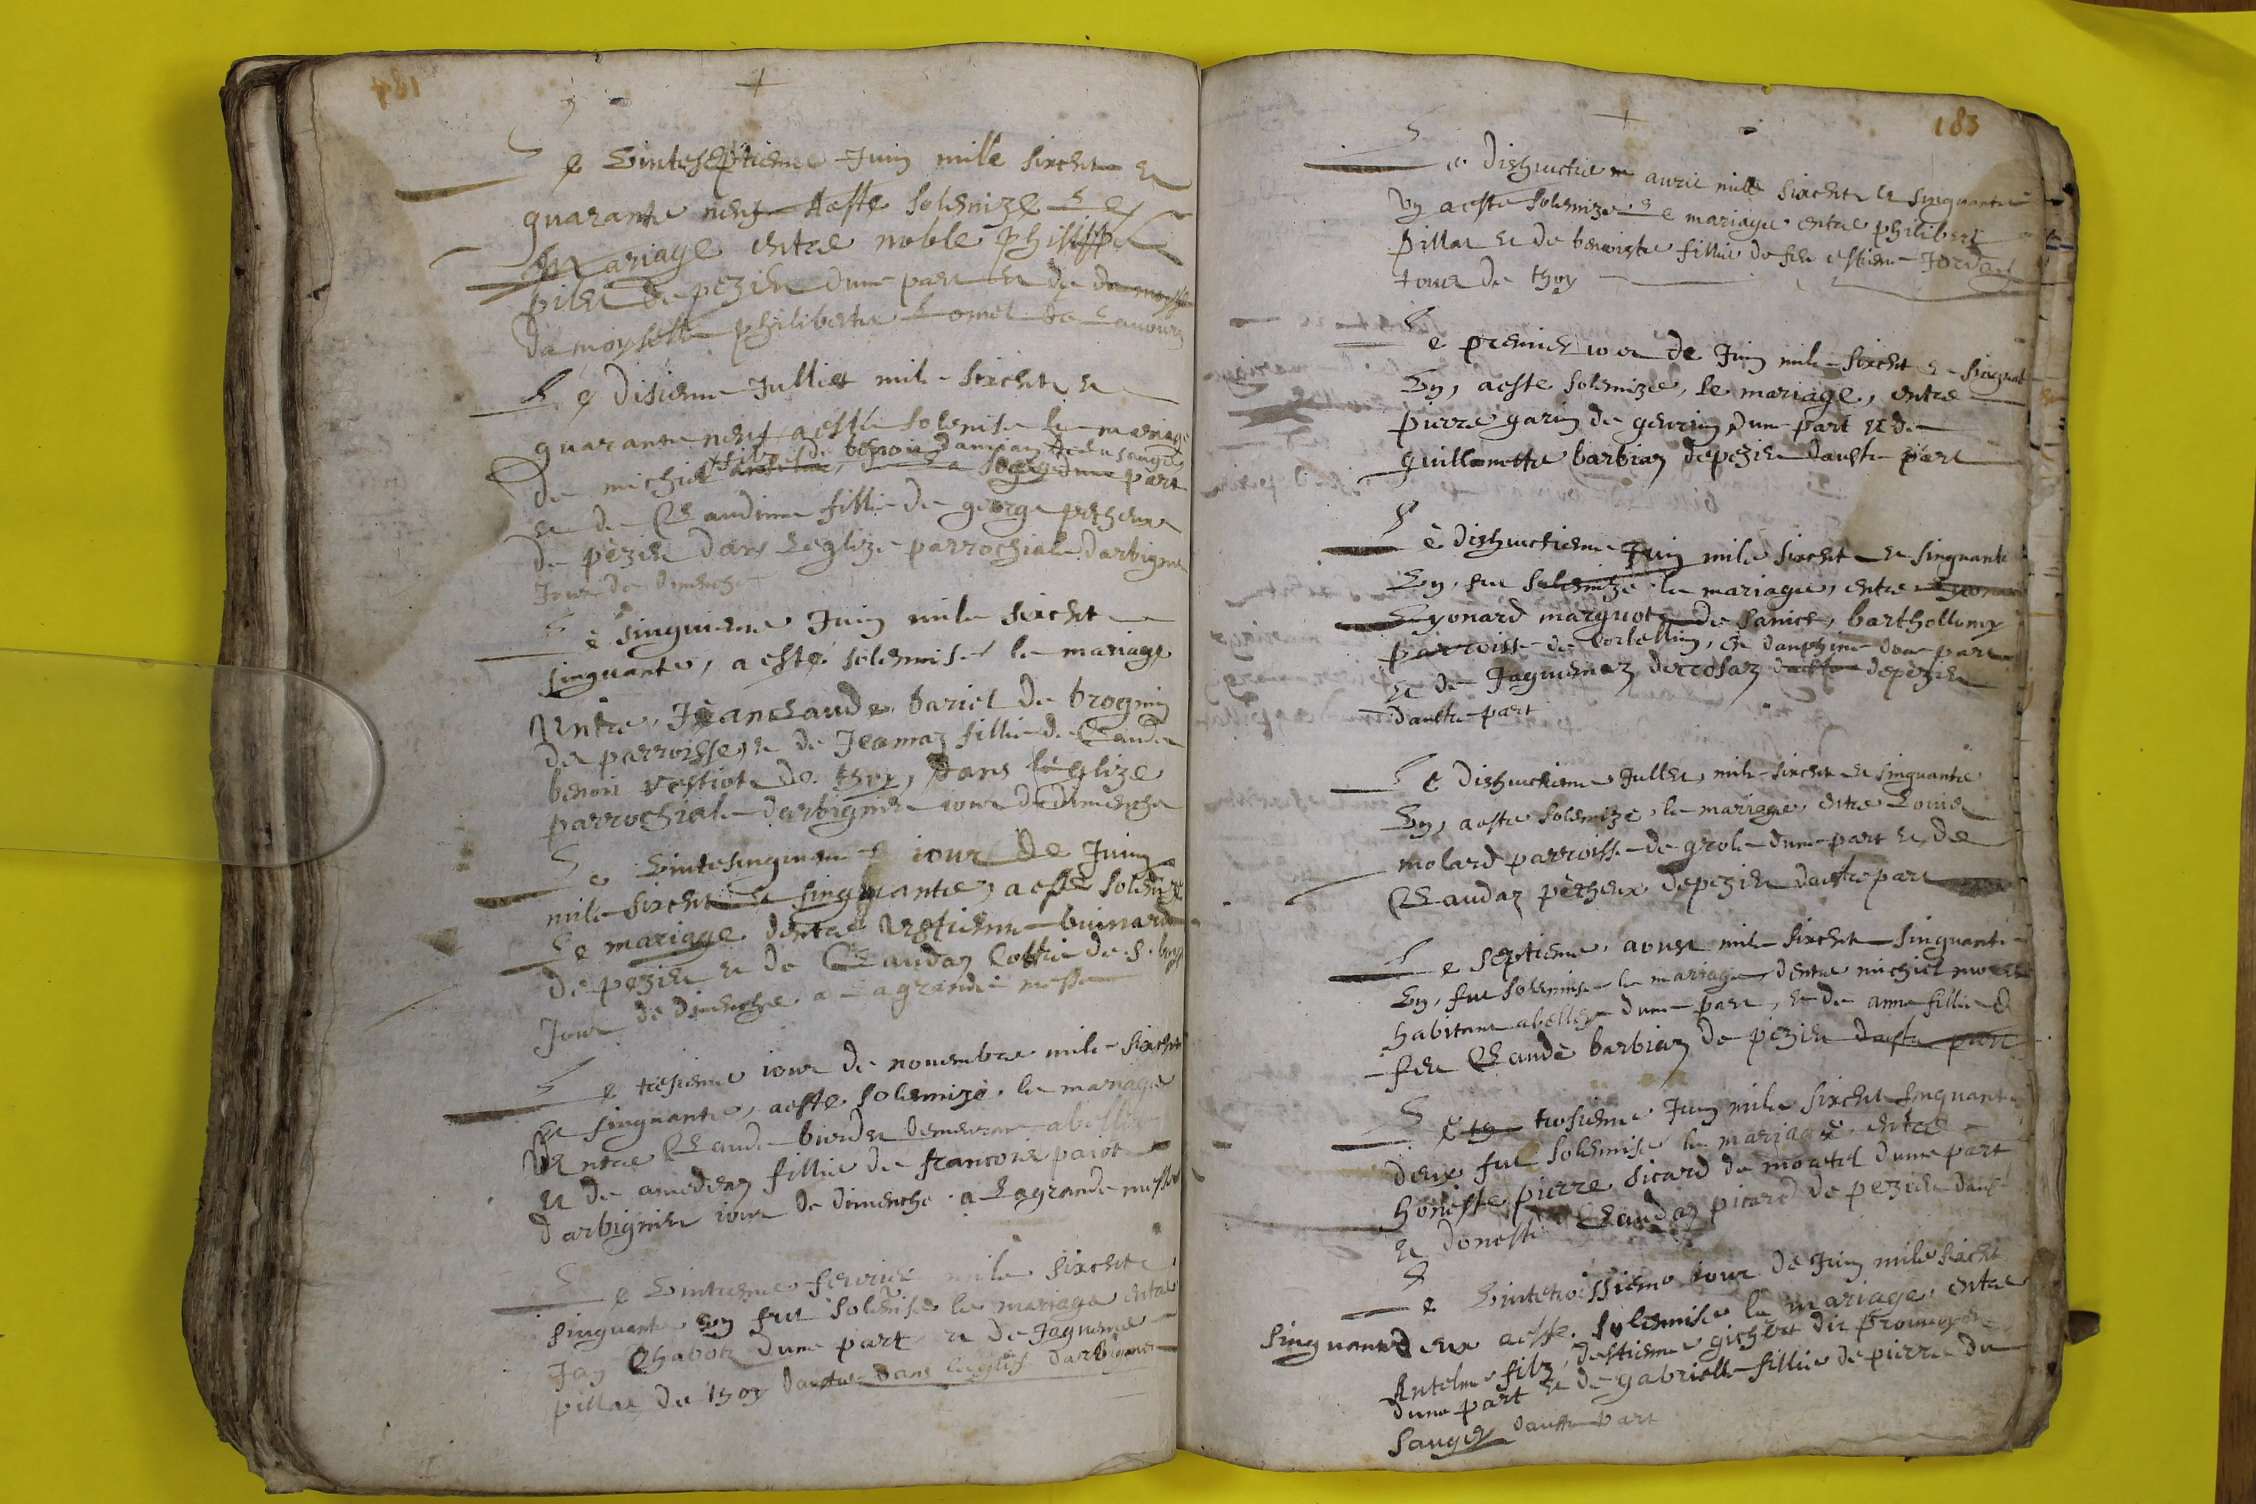 184
Le Vinteseptiesme Juin mille sixcht et
quarante neuf Aeste solemnize Le
Mariage entre noble Philippe
pilet de pezieu dune part et de
damoyselle philiberte Lomel de
Le disiesme Jullies mil sixcht et
quarante neuf aesté solemise le mariage
filz de benoit
de michiel dune part
et de Claudine fillie de george pecheux
de pezieu dans Leglize parrochiale darbignieu
Jour de dimenche
Le singuiesme Juin mile sixcht
singuante, a esté solemnisé le mariage
Entre, Jeanclaude bariel de brognin
de parroisse, et de Jeamaz fillie de Claude
benoit vestiot de thoy, dans léglize
parrochiale darbignieu iour de dimenche
Le Vintesinguiesme iour de Juin
mile sixcht et singuante, a esté solemizé
Le mariage dentre Estienne buinard
de pezieu et de Claudaz Cottie de S.
Jour de dimenche a La grande messe
Le tresiesme iour de nouembre mile sixcht
et singuante, aeste solemizé le mariage
Entre Claude burdet demeurant abelley
et de amedeaz fillie de francois paiot
darbignieu iour de dimenche a La grande messe
Le Vintiesme feurier mile sixcht
singuante Vng fut solemise le mariage entre
Jan Chabot dune part et de Jaguema
pillat de thoy dautre dans leglise darbignieu
183
Le dishuictiesme auril mille sixcht et singuante
Vng aeste solemize le mariage entre philibert
pillat et de benoiste fillie de feu estiene Jordan
tous de thoy
Le premier iour de Juin mile sixcht et singuante
Vng, aeste solemize, le mariage, entre
pierre garin de geurin dune part et de
guillamette barbiaz depezieu daultre part
Le dishuictiesme Juin mile sixcht et singuante
Vng, fut solemizé le mariage, entre
Lyonard marquot de Sainct, barthollomy
parroisse de Vorbellin, en dauphine dune part
et de Jaguemaz decrosaz depezieu
daultre part
Le dishuictiesme Jullet, mile sixcht et singuante
Vng, aeste solemizé, le mariage entre Louis
molard parroisse de grole dune part et de
Claudaz pecheux depezieu daultre part
Le septiesme, aoust mile sixcht singuante
Vng, fut solemnise le mariage, dentre michiel
habitant abelley dune part, et de anne fillie de
feu Claude barbiaz de pezieu daultre part
Le troisiesme Juin mile sixcht singuante
deux fut solemise le mariage, entre
honeste pierre sicard de mortel dune part
et doneste Claudaz picard de pezieu
Le Vintetroissiesme iour de Juin mile sixcht
singuante deux aeste. solemise le mariage entre
Antelme filz, destienne gichert dit
dune part et de gabrielle fillie de pierre du
Sauget daultre part